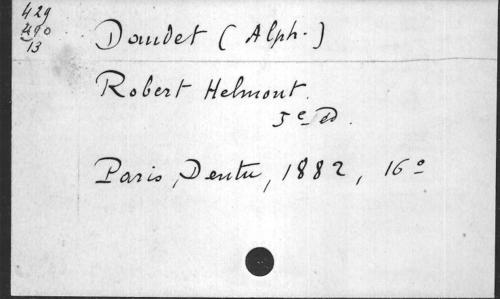 429
490
13
Daudet (Alph.)
Robert Helmont.
5e Ed.
Paris, Dentu, 1882, 16o